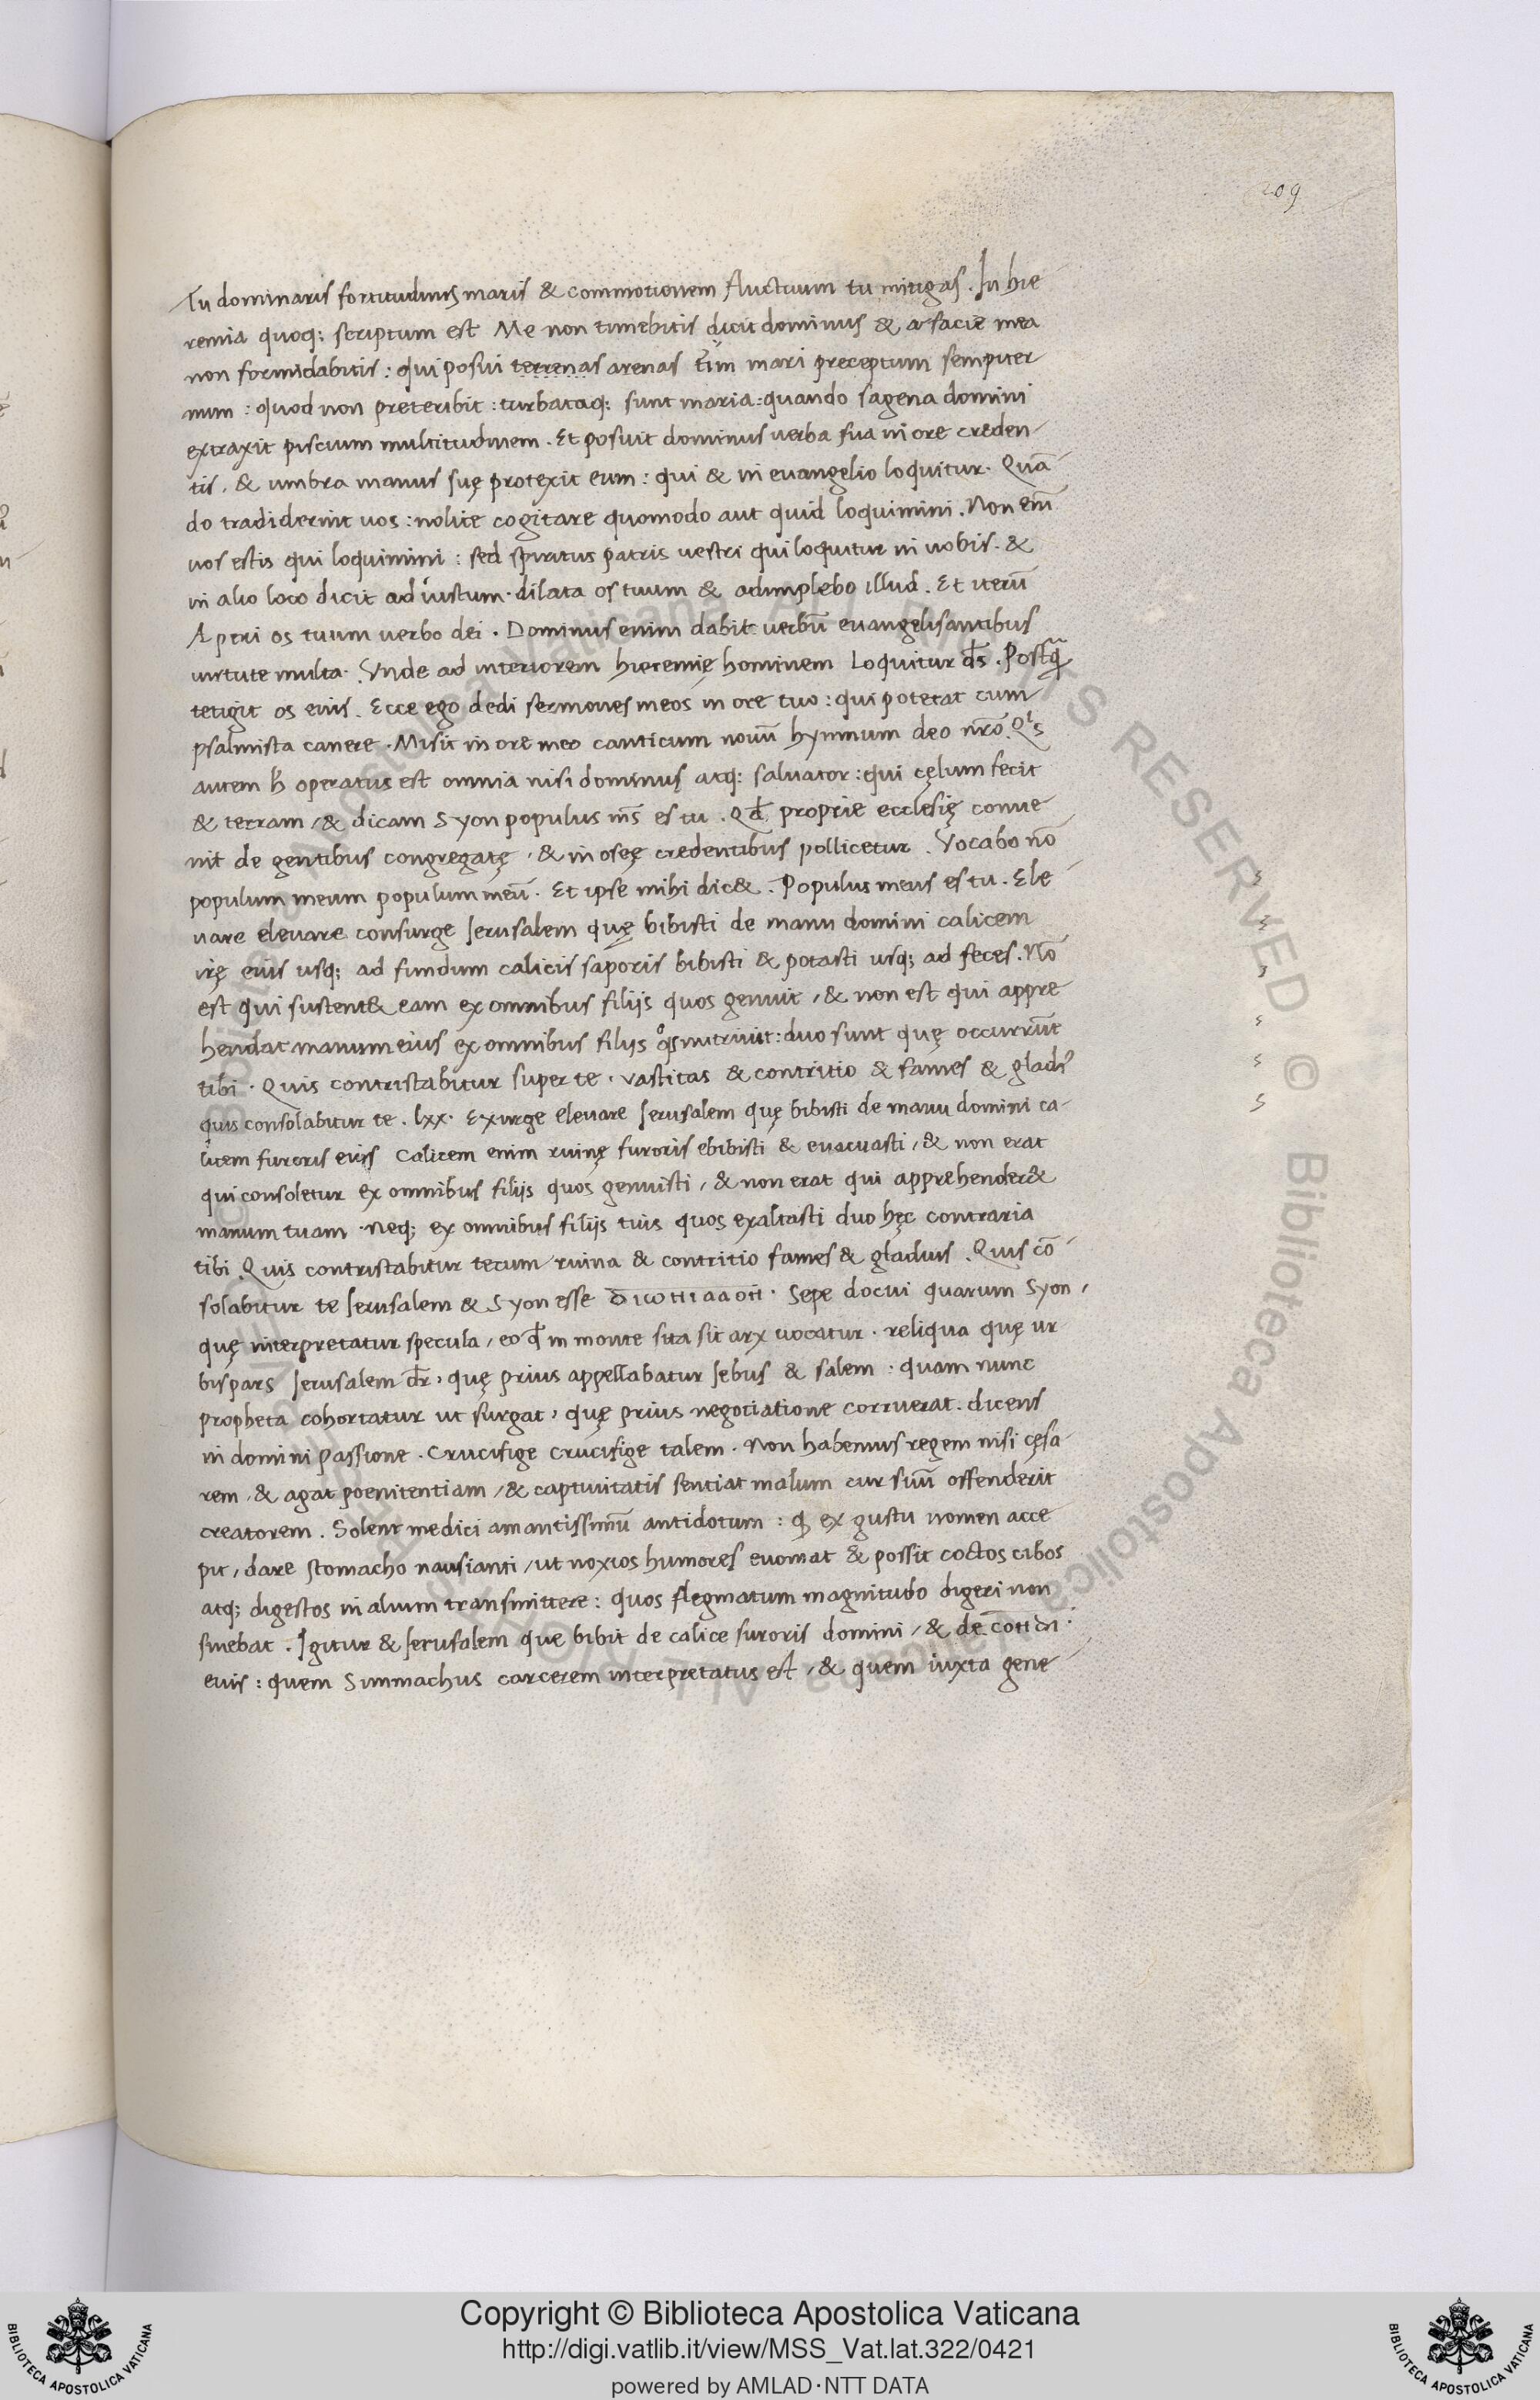 209
Tu dominaris fortitudinis maris & commotionem fluctuum tu mitigas. In hie
remia quoq; scriptum est Me non timebitis dicit dominus & a facie mea
non formidabitis: qui posui terrenas arenas mari preceptum sempiter
num: quod non preteribit: turbataq; sunt maria: quando sagena domini
extraxit piscium multitudinem. Et posuit dominus uerba sua in ore creden
tis, & umbra manus suę protexit eum: qui & in euangelio loquitur. Quā
do tradiderint uos: nolite cogitare quomodo aut quid loquimini. Non em̄
uos estis qui loquimini: sed spiritus patris uestri qui loquitur in uobis. &
in alio loco dicit ad iustum. dilata os tuum & adimplebo illud. Et iterū
Aperi os tuum uerbo dei. Dominus enim dabit uerbū euangelisantibus
uirtute multa. Vnde ad interiorem hieremię hominem loquitur ds̄. Postq̃
tetigit os eius. Ecce ego dedi sermones meos in ore tuo: qui poterat cum
psalmista canere. Misit in ore meo canticum nouū hymnum deo nr̄o. Qⁱs
autem h̄ operatus est omnia nisi dominus atq; saluator: qui cęlum fecit
& terram, & dicam Syon populus m̄s es tu. Qd̄ proprie ecclesię conue
nit de gentibus congregatę, & in oseę credentibus pollicetur. Vocabo nō
populum meum populum meū. Et ipse mihi dic&. Populus meus es tu. Ele
uare eleuare consurge Jerusalem quę bibisti de manu domini calicem
irę eius usq; ad fundum calicis saporis bibisti & potasti usq; ad feces. Nō
est qui sustent& eam ex omnibus filijs quos genuit, & non est qui appre
hendat manum eius ex omnibus filijs qͦs nutriuit: duo sunt quę occurrūt
tibi. Quis contristabitur super te. vastitas & contritio & fames & gladi᾿
quis consolabitur te. lxx. Exurge eleuare Jerusalem quę bibisti de manu domini ca-
licem furoris eius Calicem enim ruinę furoris ebibisti & euacuasti, & non erat
qui consoletur ex omnibus filijs quos genuisti, & non erat qui apprehender&
manum tuam. neq; ex omnibus filijs tuis quos exaltasti duo hęc contraria
tibi. Quis contristabitur tecum ruina & contritio fames & gladius. Quis cō
solabitur te Jerusalem & Syon esse Sepe docui quarum Syon,
quę interpretatur specula, eo qd̄ in monte sita sit arx uocatur. reliqua quę ur
bis pars Jerusalem dr̄, quę prius appellabatur Jebus & salem: quam nunc
propheta cohortatur ut surgat, quę prius negotiatione corruerat. dicens
in domini passione. Crucifige crucifige talem. Non habemus regem nisi cęsa
rem, & agat poenitentiam, & captiuitatis sentiat malum cur suū offenderit
creatorem. Solent medici amantissimū antidotum: q̨ ex gustu nomen acce
pit, dare stomacho nausianti, ut noxios humores euomat & possit coctos cibos
atq; digestos in aluum transmittere: quos flegmatum magnitudo digeri non
sinebat. Igitur & Jerusalem que bibit de calice furoris domini, & de
eius: quem Simmachus carcerem interpretatus est, & quem iuxta gene
© Biblioteca Apostolica Vaticana ALL RIGHTS RESERVED
BIBLIOTECA APOSTOLICA VATICANA
Copyright © Biblioteca Apostolica Vaticana
http://digi.vatlib.it/view/MSS_Vat.lat.322/0421
powered by AMLAD·NTT DATA
BIBLIOTECA APOSTOLICA VATICANA